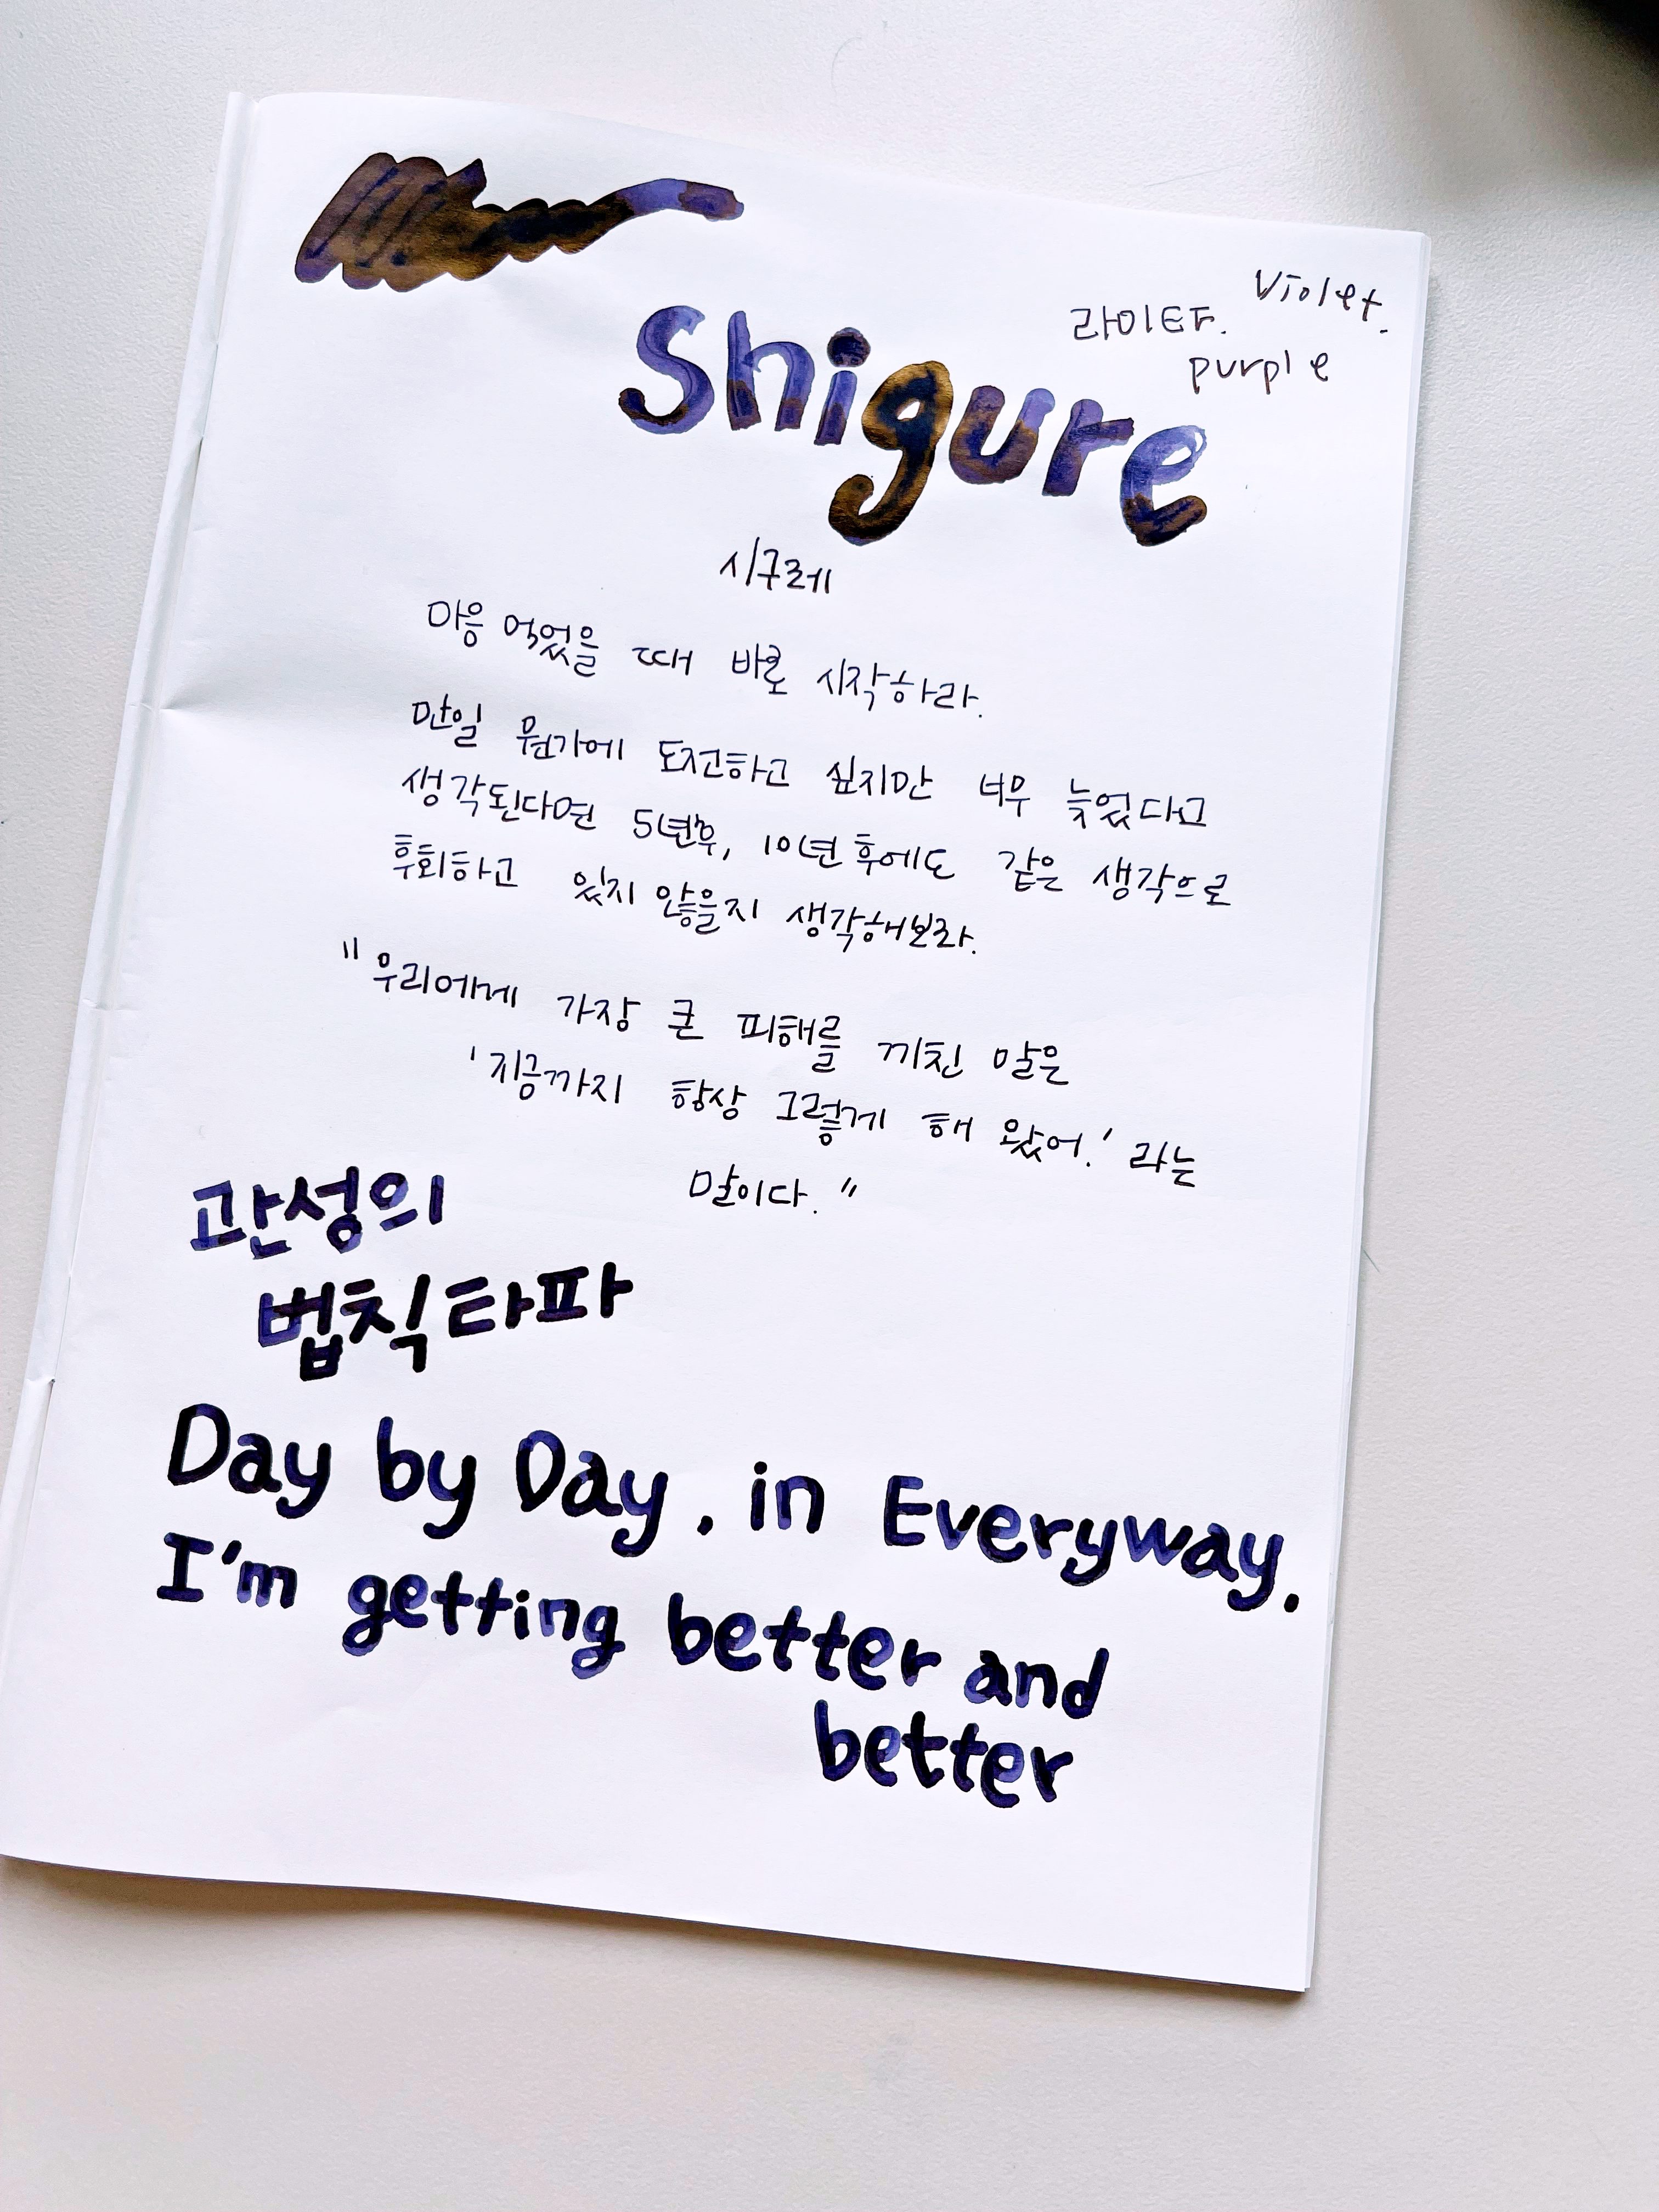 Violet.
라이트.
purple
Shigure
시구레
마음 먹었을 때 바로 시작하라.
만일 뭔가에 도전하고 싶지만 너무 늦었다고
생각된다면 5년후, 10년 후에도 같은 생각으로
후회하고 있지 않을지 생각해보라.
"우리에게 가장 큰 피해를 끼친 말은
'지금까지 항상 그렇게 해 왔어.' 라는
말이다."
관성의
법칙타파
Day by Day. in Everyway.
I'm getting better and
better